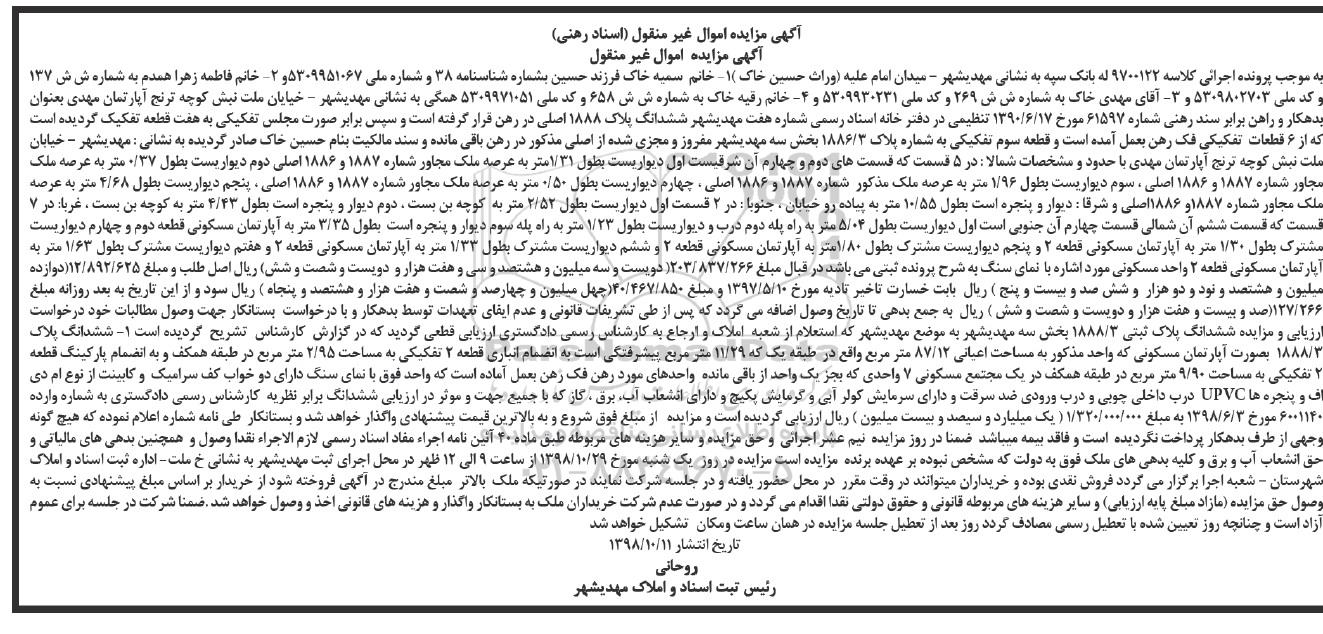 آگهی مزایده اموال غیر منقول (اسناد رهنی)
آگهی مزایده اموال غیر منقول
به موجب پرونده اجرائی کلاسه ۹۷۰۰۱۲۲ له بانک سپه به نشانی مهدیشهر – میدان امام علیه (وراث حسین خاک )۱- خانم سمیه خاک فرزند حسین بشماره شناسنامه ۳۸ و شماره ملی ۵۳۰۹۹۵۱۰۶۷و ۲- خانم فاطمه زهرا همدم به شماره ش ش ۱۳۷
و کد ملی ۵۳۰۹۸۰۲۷۰۳ و ۳- آقای مهدی خاک به شماره ش ش ۲۶۹ و کد ملی ۵۳۰۹۹۳۰۲۳۱ و ۴- خانم رقیه خاک به شماره ش ش ۶۵۸ و کد ملی ۵۳۰۹۹۷۱۰۵۱ همگی به نشانی مهدیشهر – خیابان ملت نبش کوچه ترنج آپارتمان مهدی بعنوان
بدهکار و راهن برابر سند رهنی شماره ۶۱۵۹۷ مورخ ۱۳۹۰/۶/۱۷ تنظیمی در دفتر خانه اسناد رسمی شماره هفت مهدیشهر ششدانگ پلاک ۱۸۸۸ اصلی در رهن قرار گرفته است و سپس برابر صورت مجلس تفکیکی به هفت قطعه تفکیک گردیده است
که از ۶ قطعات تفکیکی فک رهن بعمل آمده است و قطعه سوم تفکیکی به شماره پلاک ۱۸۸۶/۳ بخش سه مهدیشهر مفروز و مجزی شده از اصلی مذکور در رهن باقی مانده و سند مالکیت بنام حسین خاک صادر گردیده به نشانی : مهدیشهر – خیابان
ملت نبش کوچه ترنج آپارتمان مهدی با حدود و مشخصات شمالا : در ۵ قسمت که قسمت های دوم و چهارم آن شرقیست اول دیواریست بطول ۱/۳۱متر به عرصه ملک مجاور شماره ۱۸۸۷ و ۱۸۸۶ اصلی دوم دیواریست بطول ۰/۳۷ متر به عرصه ملک
مجاور شماره ۱۸۸۷ و ۱۸۸۶ اصلی ، سوم دیواریست بطول ۱/۹۶ متر به عرصه ملک مذکور شماره ۱۸۸۷ و ۱۸۸۶ اصلی ، چهارم دیواریست بطول ۰/۵۰ متر به عرصه ملک مجاور شماره ۱۸۸۷ و ۱۸۸۶ اصلی ، پنجم دیواریست بطول ۴/۶۸ متر به عرصه
ملک مجاور شماره ۱۸۸۷و ۱۸۸۶اصلی و شرقا : دیوار و پنجره است بطول ۱۰/۵۵ متر به پیاده رو خیابان ، جنوبا : در ۲ قسمت اول دیواریست بطول ۲/۵۲ متر به کوچه بن بست ، دوم دیوار و پنجره است بطول ۴/۴۳ متر به کوچه بن بست ، غربا: در ۷
قسمت که قسمت ششم آن شمالی قسمت چهارم آن جنوبی است اول دیواریست بطول ۵/۰۴ متر به راه پله دوم درب و دیواریست بطول ۱/۲۳ متر به راه پله سوم دیوار و پنجره است بطول ۳/۳۵ متر به آپارتمان مسکونی قطعه دوم و چهارم دیواریست
مشترک بطول ۱/۳۰ متر به آپارتمان مسکونی قطعه ۲ و پنجم دیواریست مشترک بطول ۱/۸۰متر به آپارتمان مسکونی قطعه ۲ و ششم دیواریست مشترک بطول ۱/۳۳ متر به آپارتمان مسکونی قطعه ۲ و هفتم دیواریست مشترک بطول ۱/۶۳ متر به
آپارتمان مسکونی قطعه ۲ واحد مسکونی مورد اشاره با نمای سنگ به شرح پرونده ثبتی می باشد در قبال مبلغ ۲۰۳/۸۳۷/۲۶۶( دویست و سه میلیون و هشتصد و سی و هفت هزار و دویست و شصت و شش) ریال اصل طلب و مبلغ ۱۲/۸۹۲/۶۲۵(دوازده
میلیون و هشتصد و نود و دو هزار و شش صد و بیست و پنج ) ریال بابت خسارت تاخیر تادیه مورخ ۱۳۹۷/۵/۱۰ و مبلغ ۴۰/۴۶۷/۸۵۰(چهل میلیون و چهارصد و شصت و هفت هزار و هشتصد و پنجاه ) ریال سود و از این تاریخ به بعد روزانه مبلغ
۱۲۷/۲۶۶(صد و بیست و هفت هزار و دویست و شصت و شش ) ریال به جمع بدهی تا تاریخ وصول اضافه می گردد که پس از طی تشریفات قانونی و عدم ایفای تعهدات توسط بدهکار و با درخواست بستانکار جهت وصول مطالبات خود درخواست
ارزیابی و مزایده ششدانگ پلاک ثبتی ۱۸۸۸/۳ بخش سه مهدیشهر به موضع مهدیشهر که استعلام از شعبه املاک و ارجاع به کارشناس رسمی دادگستری ارزیابی قطعی گردید که در گزارش کارشناس تشریح گردیده است ۱- ششدانگ پلاک
۱۸۸۸/۳ بصورت آپارتمان مسکونی که واحد مذکور به مساحت اعیانی ۸۷/۱۲ متر مربع واقع در طبقه یک که ۱۱/۲۹ متر مربع پیشرفتگی است به انضمام انباری قطعه ۲ تفکیکی به مساحت ۲/۹۵ متر مربع در طبقه همکف و به انضمام پارکینگ قطعه
۲ تفکیکی به مساحت ۹/۹۰ متر مربع در طبقه همکف در یک مجتمع مسکونی ۷ واحدی که بجز یک واحد از باقی مانده واحدهای مورد رهن فک رهن بعمل آماده است که واحد فوق با نمای سنگ دارای دو خواب کف سرامیک و کابینت از نوع ام دی
اف و پنجره ها UPVC درب داخلی چوبی و درب ورودی ضد سرقت و دارای سرمایش کولر آبی و گرمایش پکیج و دارای انشعاب آب، برق ، گاز که با جمیع جهت و موثر در ارزیابی ششدانگ برابر نظریه کارشناس رسمی دادگستری به شماره وارده
۶۰۰۱۱۴۰ مورخ ۱۳۹۸/۶/۳ به مبلغ ۱/۳۲۰/۰۰۰/۰۰۰ ( یک میلیارد و سیصد و بیست میلیون ) ریال ارزیابی گردیده است و مزایده از مبلغ فوق شروع و به بالاترین قیمت پیشنهادی واگذار خواهد شد و بستانکار طی نامه شماره اعلام نموده که هیچ گونه
وجهی از طرف بدهکار پرداخت نگردیده است و فاقد بیمه میباشد ضمنا در روز مزایده نیم عشر اجرائی و حق مزایده و سایر هزینه های مربوطه طبق ماده ۴۰ آئین نامه اجراء مفاد اسناد رسمی لازم الاجراء نقدا وصول و همچنین بدهی های مالیاتی و
حق انشعاب آب و برق و کلیه بدهی های ملک فوق به دولت که مشخص نبوده بر عهده برنده مزایده است مزایده در روز یک شنبه مورخ ۱۳۹۸/۱۰/۲۹ از ساعت ۹ الی ۱۲ ظهر در محل اجرای ثبت مهدیشهر به نشانی خ ملت- اداره ثبت اسناد و املاک
شهرستان – شعبه اجرا برگزار می گردد فروش نقدی بوده و خریداران میتوانند در وقت مقرر در محل حضور یافته و در جلسه شرکت نمایند در صورتیکه ملک بالاتر مبلغ مندرج در آگهی فروخته شود از خریدار بر اساس مبلغ پیشنهادی نسبت به
وصول حق مزایده (مازاد مبلغ پایه ارزیابی) و سایر هزینه های مربوطه قانونی و حقوق دولتی نقدا اقدام می گردد و در صورت عدم شرکت خریداران ملک به بستانکار واگذار و هزینه های قانونی اخذ و وصول خواهد شد .ضمنا شرکت در جلسه برای عموم
آزاد است و چنانچه روز تعیین شده با تعطیل رسمی مصادف گردد روز بعد از تعطیل جلسه مزایده در همان ساعت ومکان تشکیل خواهد شد
تاریخ انتشار ۱۳۹۸/۱۰/۱۱
روحانی
رئیس ثبت اسناد و املاک مهدیشهر
ParsNamadData
۰۲۱-۸۸۳۴۹۶۷۰-۵